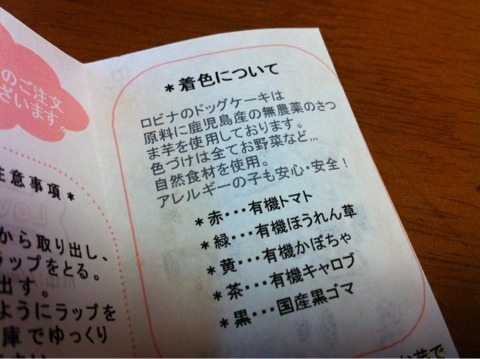 のご注文
ざいます。
注意事項*
から取り出し、
ラップをとる。
出す。
ようにラップを
庫でゆっくり
*着色について
ロビナのドッグケーキは
原料に鹿児島産の無農薬のさつ
ま芋を使用しております。
色づけは全てお野菜など…
自然食材を使用。
アレルギーの子も安心・安全!
*赤・・・有機トマト
*緑・・・有機ほうれん草
*黄・・・有機かぼちゃ
*茶・・・有機キャロブ
*黒・・・国産黒ゴマ